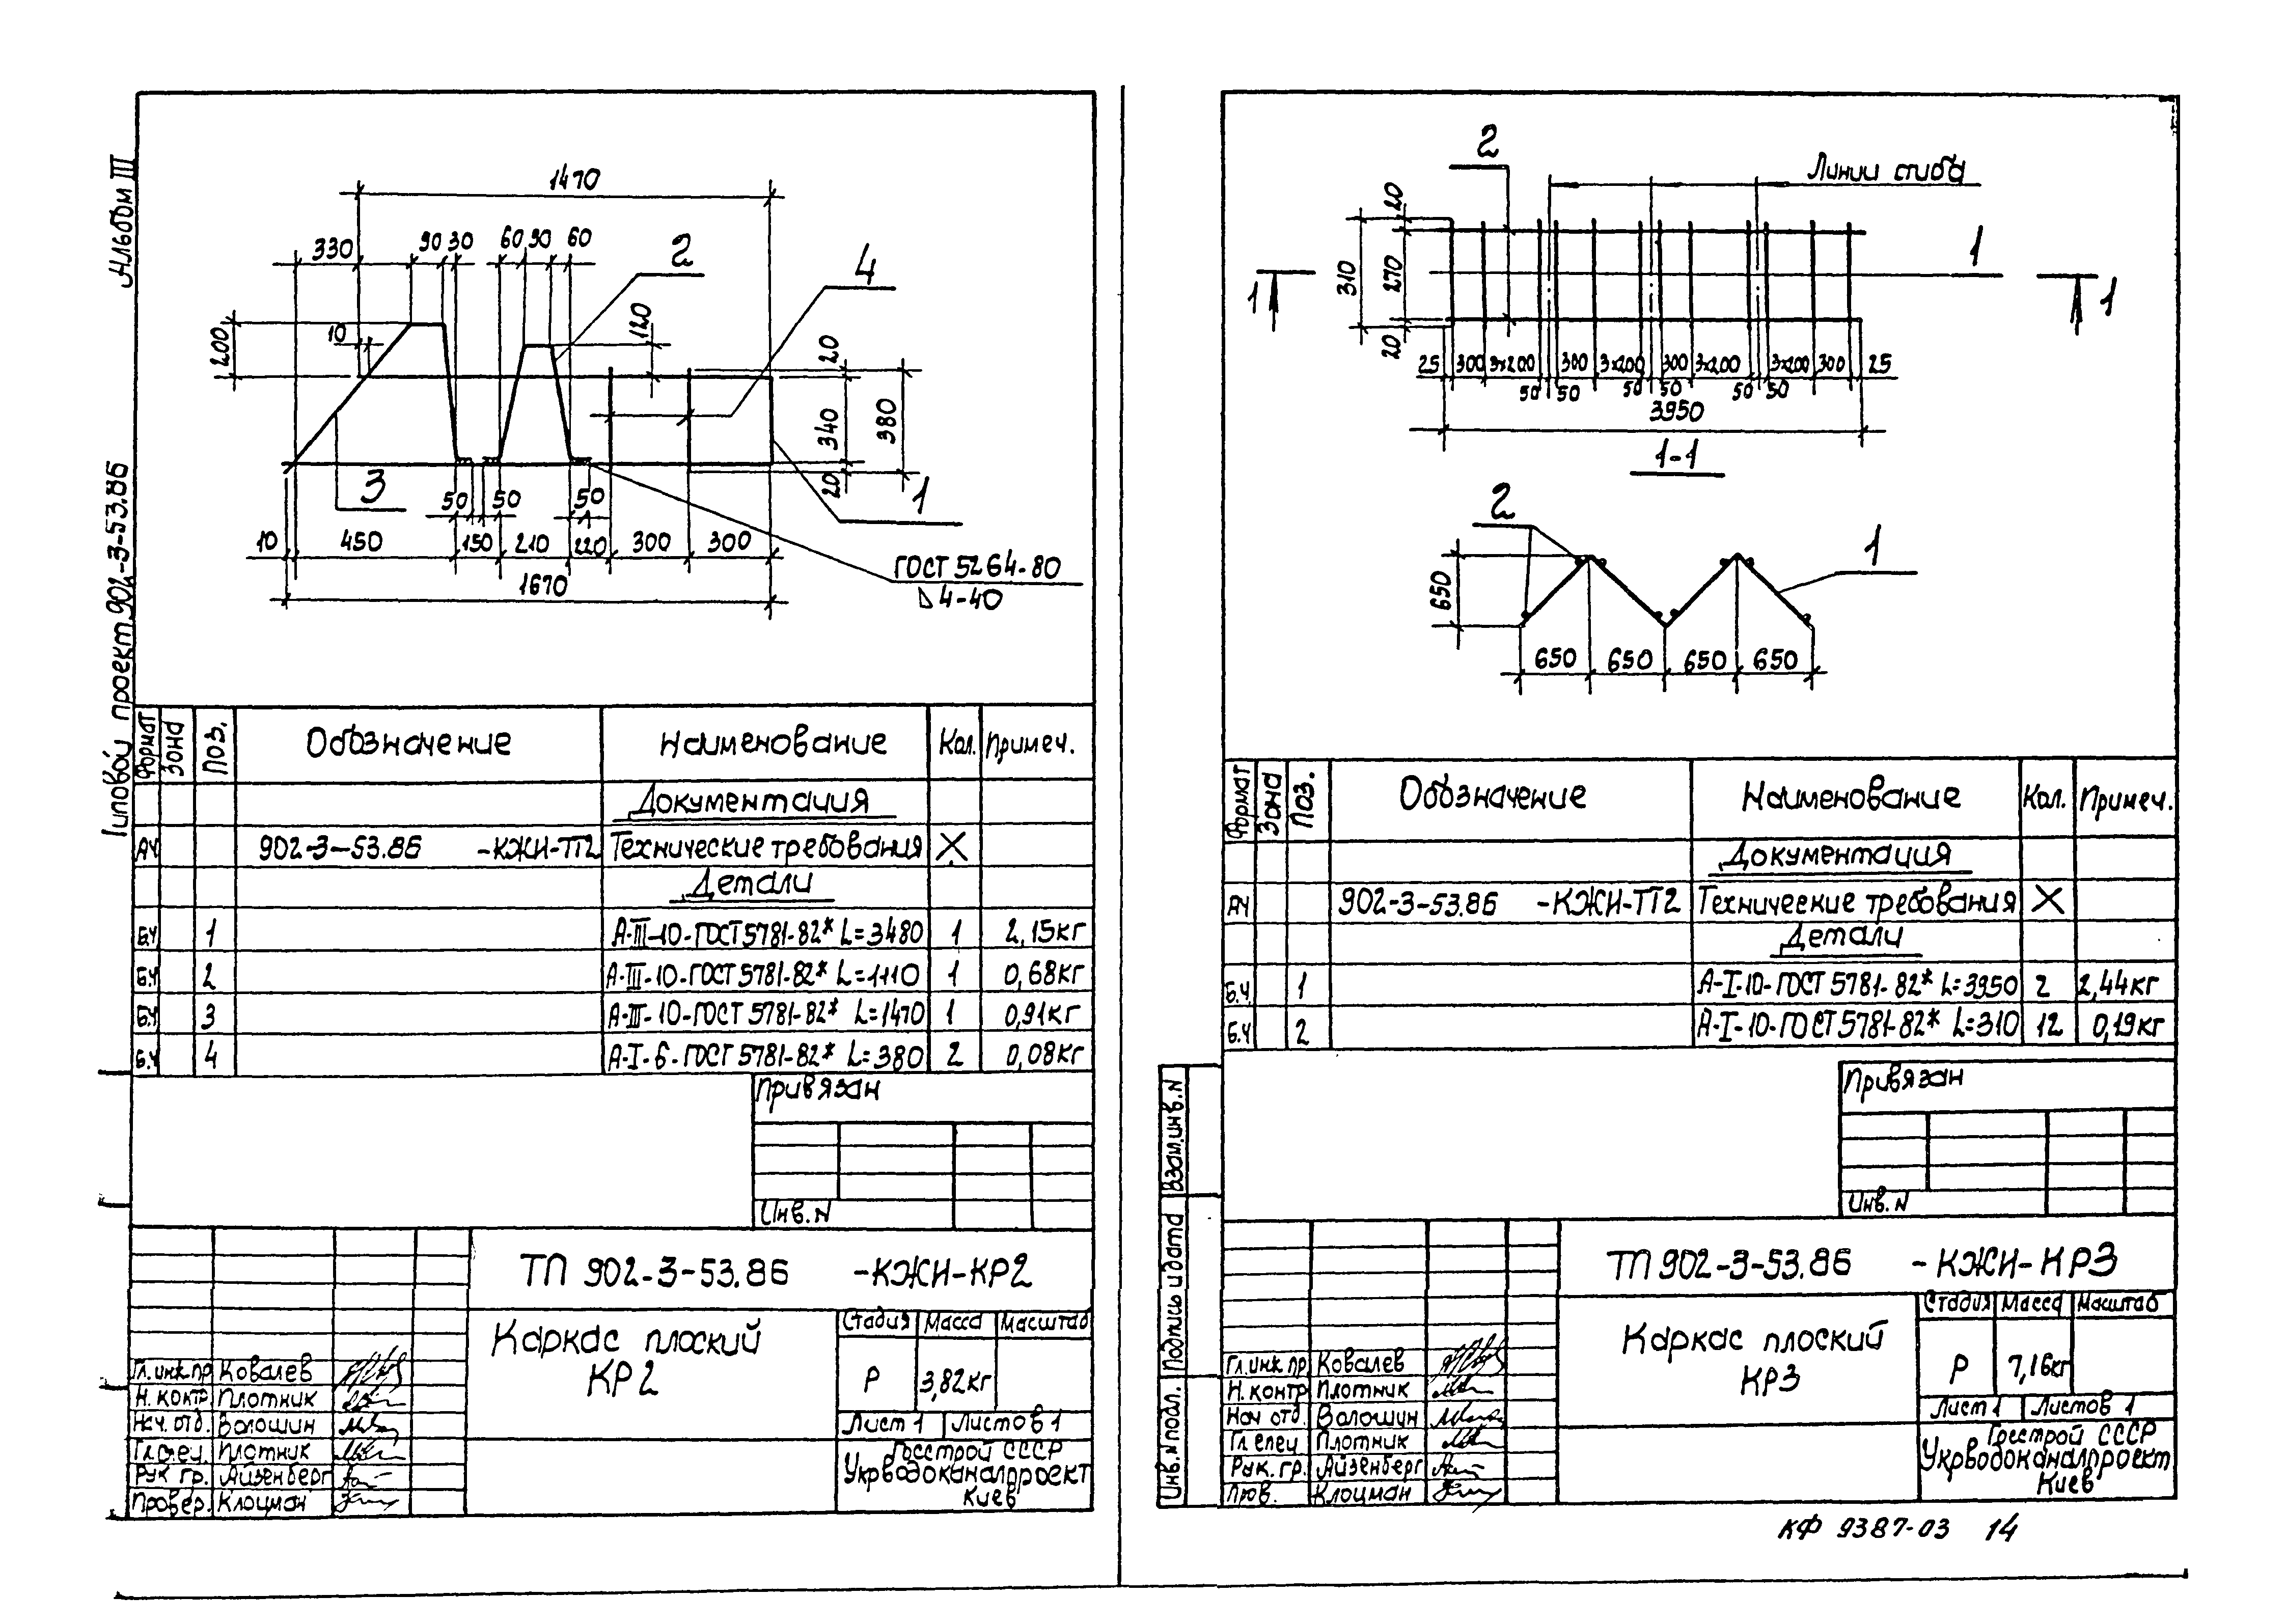 Альбом III
Типовой проект 902-3-53.86
1470
330
90 30
60 90
60
2
4
200
10
120
20
340
380
20
3
50
50
50
1
10
450
150
210
220
300
300
1670
ГОСТ 5264-80
4-40
Формат
Зона
Поз.
Обозначение
Наименование
Кол.
Примеч.
Документация
А4 902-3-53.86 -КЖИ-ТТ2 Технические требования X
Детали
Б.Ч 1 А-III-10-ГОСТ 5781-82* L=3480 1 2,15кг
Б.Ч 2 А-III-10-ГОСТ 5781-82* L=1110 1 0,68кг
Б.Ч 3 А-III-10-ГОСТ 5781-82* L=1470 1 0,91кг
Б.Ч 4 А-I-6-ГОСТ 5781-82* L=380 2 0,08кг
Привязан
Инв. N
ТП 902-3-53.86 -КЖИ-КР2
Каркас плоский
КР2
Стадия Масса Масштаб
Р 3,82кг
Лист 1 Листов 1
Госстрой СССР
Укрводоканалпроект
Киев
Гл.инж.пр Ковалев
Н. контр Плотник
Нач. отд. Волошин
Гл.спец Плотник
Рук гр. Айзенберг
Провер. Клоцман
2
Линии сгиба
20
310
270
20
1
1
1
25 300 3х200 300 3х200 300 3х200 3х200 300 25
50 50 50 50 50 50
3950
1-1
2
1
650
650 650 650 650
Формат
Зона
Поз.
Обозначение
Наименование
Кол.
Примеч.
Документация
А4 902-3-53.86 -КЖИ-ТТ2 Технические требования X
Детали
Б.Ч 1 А-I-10-ГОСТ 5781-82* L=3950 2 2,44кг
Б.Ч 2 А-I-10-ГОСТ 5781-82* L=310 12 0,19кг
Привязан
Инв. N
Взам.инв.N
Подпись и дата
Инв.N подл.
ТП 902-3-53.86 -КЖИ-КР3
Каркас плоский
КР3
Стадия Масса Масштаб
Р 7,16кг
Лист 1 Листов 1
Госстрой СССР
Укрводоканалпроект
Киев
Гл.инж.пр Ковалев
Н. контр Плотник
Нач отд. Волошин
Гл спец Плотник
Рук. гр. Айзенберг
Пров. Клоцман
КФ 9387-03 14